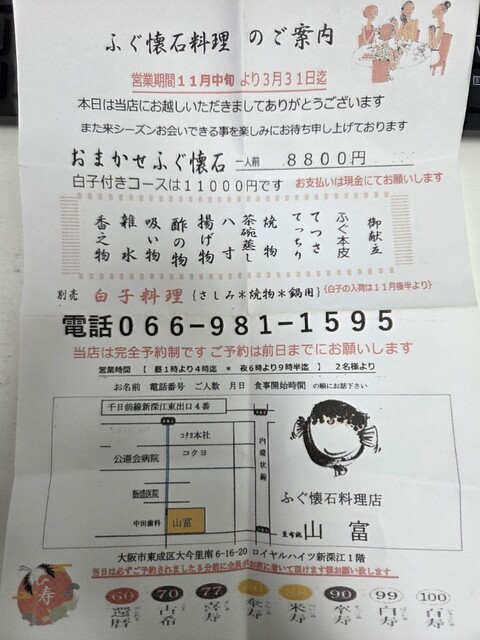 ふぐ懐石料理 のご案内
営業期間11月中旬より3月31日迄
本日は当店にお越しいただきましてありがとうございます
また来シーズンお会いできる事を楽しみにお待ち申し上げております
おまかせふぐ懐石 一人前 8800円
白子付きコースは11000円です お支払いは現金にてお願いします
御献立
ふぐ本皮
てっさ
てっちり
焼物
茶碗蒸し
八寸
揚げ物
酢の物
吸い物
雑水
香之物
別売 白子料理{さしみ*焼物*鍋用}{白子の入荷は11月後半より}
電話066-981-1595
当店は完全予約制です ご予約は前日までにお願いします
営業時間 【 昼1時より4時迄 * 夜6時より9時半迄 】 2名様より
お名前 電話番号 ご人数 月日 食事開始時間 の順にお話下さい
千日前線新深江東出口4番
コクヨ本社
コクヨ
公道会病院
内環状線
飯盛医院
中田歯科
山富
ふぐ懐石料理店
山富
大阪市東成区大今里南6-16-20 ロイヤルハイツ新深江1階
当日は必ずご予約されました5分前に全員がお席に着いて頂けます様お願い致します
寿
60 還暦
70 古希
77 喜寿
80 傘寿
88 米寿
90 卒寿
99 白寿
100 百寿